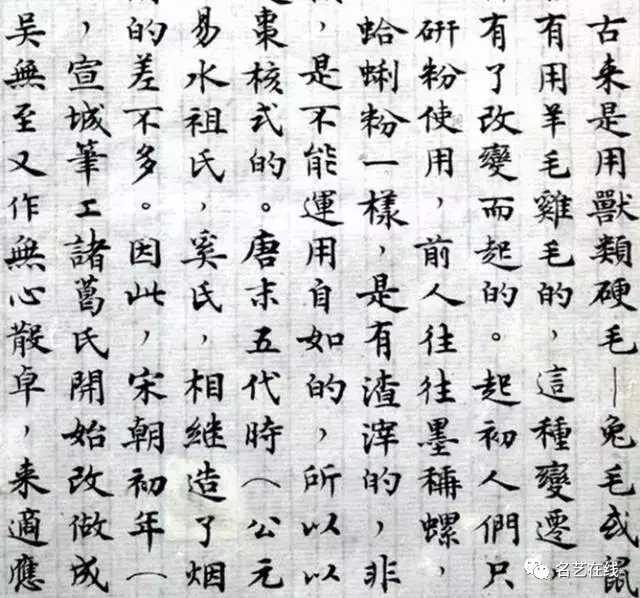 古来是用獸類硬毛—兔毛或鼠
有用羊毛雞毛的，這種變遷，
有了改變而起的。起初人們只
研粉使用，前人往往墨稱螺，
蛤蜊粉一樣，是有渣滓的，非
，是不能運用自如的，所以以
棗核式的。唐末五代時（公元
易水祖氏，奚氏，相继造了烟
的差不多。因此，宋朝初年（
，宣城筆工諸葛氏開始改做成
吳無至又作無心散卓，来適應
名艺在线